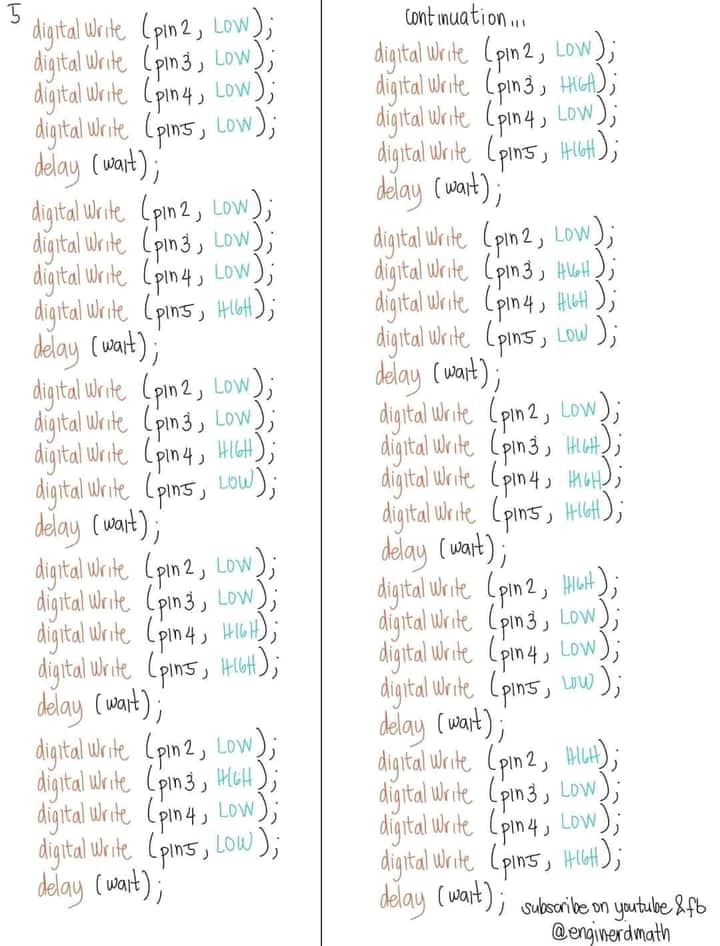 5
digitalWrite (pin2, LOW);
digitalWrite (pin3, LOW);
digitalWrite (pin4, LOW);
digitalWrite (pin5, LOW);
delay (wait);
digitalWrite (pin2, LOW);
digitalWrite (pin3, LOW);
digitalWrite (pin4, LOW);
digitalWrite (pin5, HIGH);
delay (wait);
digitalWrite (pin2, LOW);
digitalWrite (pin3, LOW);
digitalWrite (pin4, HIGH);
digitalWrite (pin5, LOW);
delay (wait);
digitalWrite (pin2, LOW);
digitalWrite (pin3, LOW);
digitalWrite (pin4, HIGH);
digitalWrite (pin5, HIGH);
delay (wait);
digitalWrite (pin2, LOW);
digitalWrite (pin3, HIGH);
digitalWrite (pin4, LOW);
digitalWrite (pin5, LOW);
delay (wait);
continuation...
digitalWrite (pin2, LOW);
digitalWrite (pin3, HIGH);
digitalWrite (pin4, LOW);
digitalWrite (pin5, HIGH);
delay (wait);
digitalWrite (pin2, LOW);
digitalWrite (pin3, HIGH);
digitalWrite (pin4, HIGH);
digitalWrite (pin5, LOW);
delay (wait);
digitalWrite (pin2, LOW);
digitalWrite (pin3, HIGH);
digitalWrite (pin4, HIGH);
digitalWrite (pin5, HIGH);
delay (wait);
digitalWrite (pin2, HIGH);
digitalWrite (pin3, LOW);
digitalWrite (pin4, LOW);
digitalWrite (pin5, LOW);
delay (wait);
digitalWrite (pin2, HIGH);
digitalWrite (pin3, LOW);
digitalWrite (pin4, LOW);
digitalWrite (pin5, HIGH);
delay (wait);
subscribe on youtube & fb
@enginerdmath